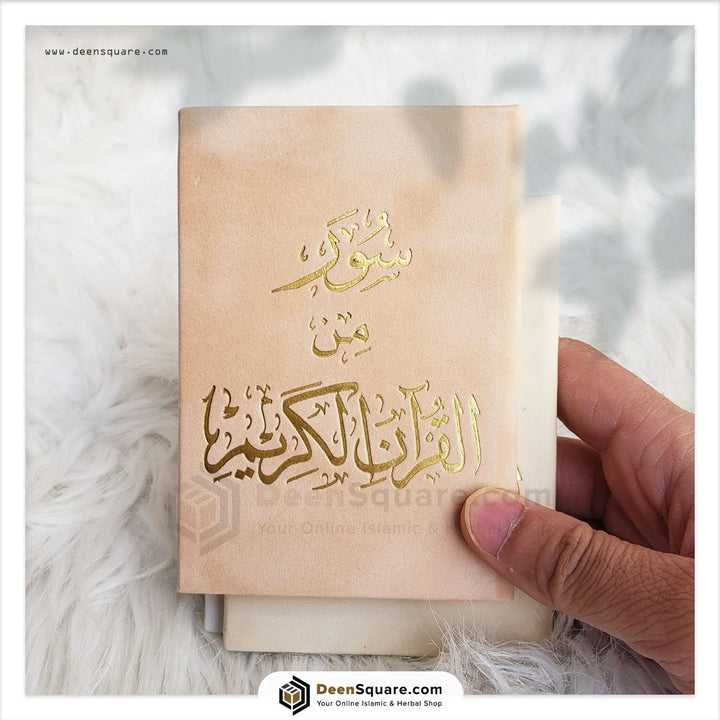 www.deensquare.com
سُوَر
مِن
القُرآن الكَرِيم
DeenSquare.com
Your Online Islamic & Herbal Shop
DeenSquare.com
Your Online Islamic & Herbal Shop